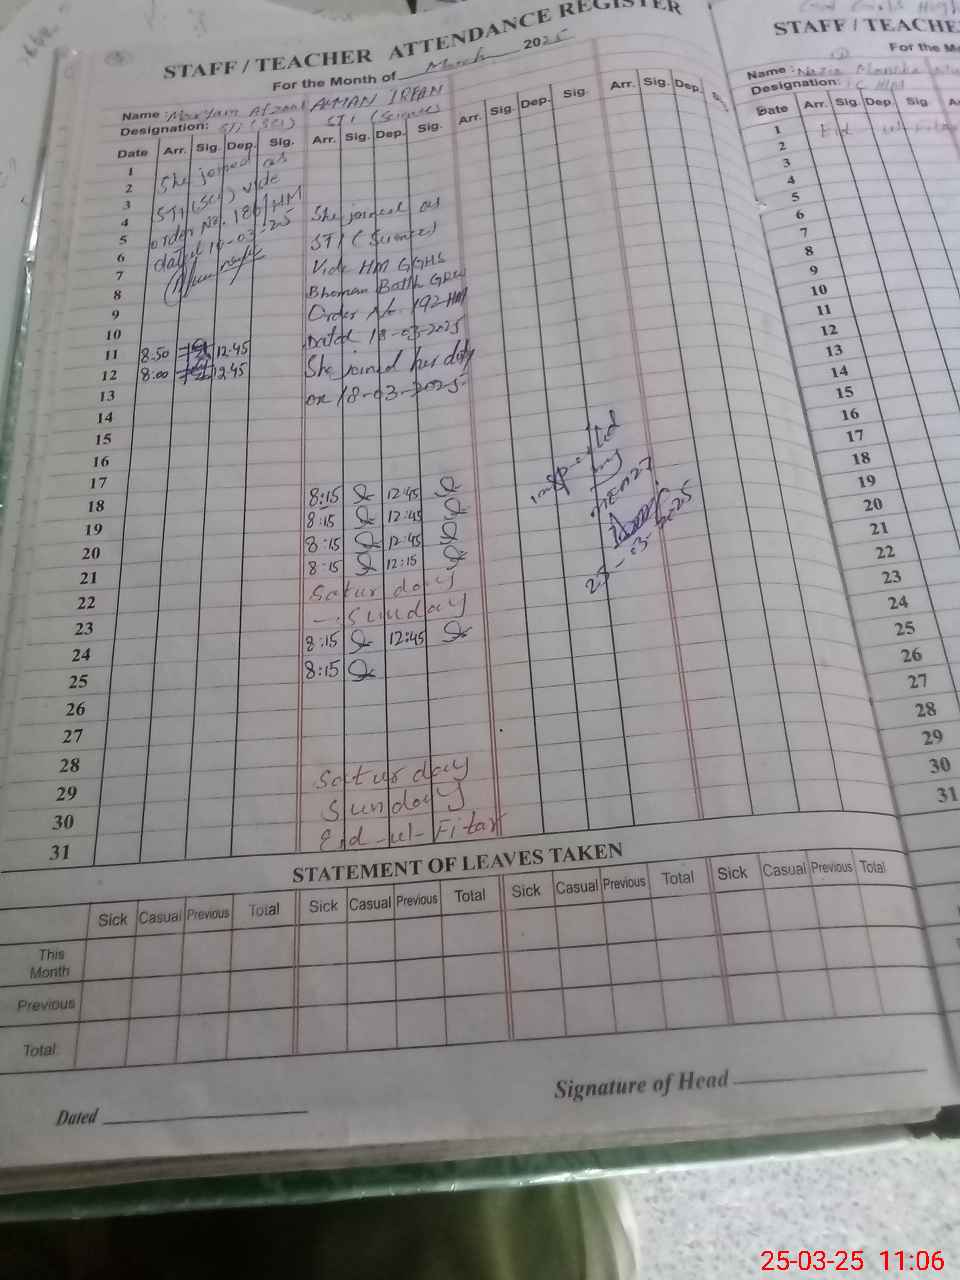 STAFF / TEACHER ATTENDANCE REGISTER
For the Month of March 2025
Name: Maryam Afzaal AIMAN IRFAN
Designation: STI (SCI) STI (Science)
Date Arr. Sig. Dep. Sig. Arr. Sig. Dep. Sig. Arr. Sig. Dep. Sig. Arr. Sig. Dep. Sig.
1
2 She joined as
3 STI (SCI) vide
4 order No. 186/HM She joined as
5 dated 10-03-25 STI (Science)
6
7 Vide HM GGHS
8 Bhoman Bath
9 Order No. 192-HM
10 Dated 18-03-2025
11 8.50 12.45 She joined her duty
12 8:00 12.45 on 18-03-2025
13
14
15
16
17
18 8:15 12:45
19 8:15 12:45
20 8:15 12:45
21 8:15 12:15
22 Saturday
23 Sunday
24 8:15 12:45
25 8:15
26
27
28
29 Saturday
30 Sunday
31 Eid-ul-Fitar
inspected
by
25-03-2025
STATEMENT OF LEAVES TAKEN
Sick Casual Previous Total Sick Casual Previous Total Sick Casual Previous Total Sick Casual Previous Total
This Month
Previous
Total
Dated
Signature of Head
STAFF / TEACHE
For the Mo
Name: Nazia
Designation:
Date Arr. Sig. Dep. Sig
1 Eid
2
3
4
5
6
7
8
9
10
11
12
13
14
15
16
17
18
19
20
21
22
23
24
25
26
27
28
29
30
31
25-03-25 11:06